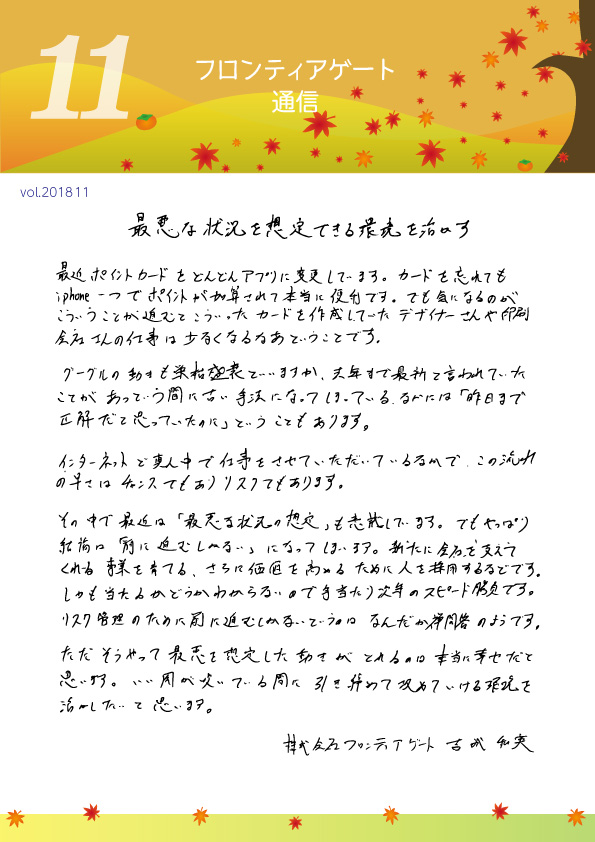 11
フロンティアゲート
通信
vol.2018 11
最悪な状況を想定できる環境を活かす
最近ポイントカードをどんどんアプリに変更しています。カードを忘れても
iphone一つでポイントが加算されて本当に便利です。でも気になるのが
こういうことが進むとこういったカードを作成していたデザイナーさんや印刷
会社さんの仕事は少なくなるなあということです。
グーグルの動きも 、去年まで最新と言われていた
ことがあっという間に古い手法になってしまっている、なかには「昨日まで
正解だと思っていたのに」ということもあります。
インターネットど真ん中で仕事をさせていただいているなかで、この流れ
の早さはチャンスでもありリスクでもあります。
その中で最近は「最悪な状況の想定」も意識しています。でもやっぱり
結論は「前に進むしかない」になってしまいます。新たに会社を支えて
くれる事業を育てる、さらに価値を高めるために人を採用するなどです。
しかも当たるかどうかわからないので手当たり次第のスピード勝負です。
リスク管理のために前に進むしかないというのはなんだか禅問答のようです。
ただそうやって最悪を想定した動きがとれるのは本当に幸せだと
思います。いい風が吹いている間に引き締めて攻めていける環境を
活かしたいと思います。
株式会社フロンティアゲート 古